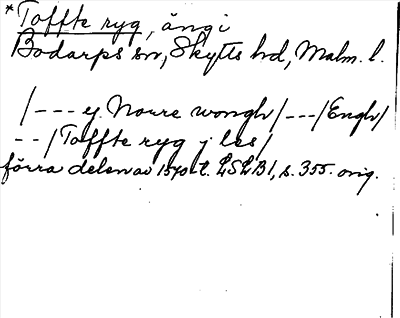 *Toffte ryg, ängi
Bodarps sn, Skytts hd, Malm. l.
/--- y Norre wongh/---/Engh/
--/Toffte ryg j les/
förra delen av 1570-t. LSLB1, s. 355. orig.